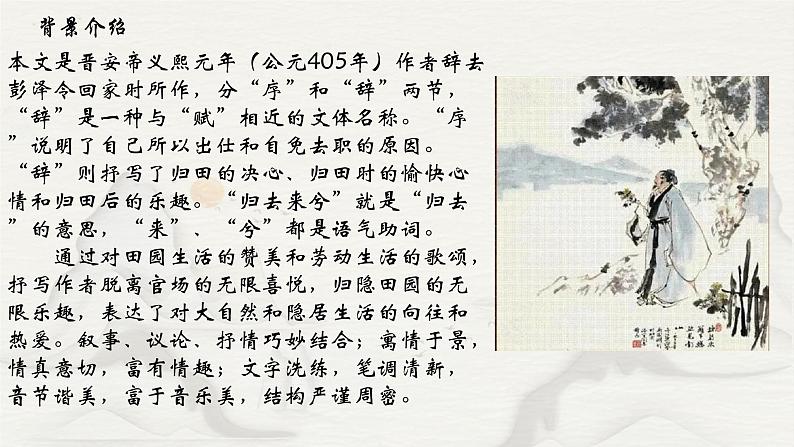 背景介绍
本文是晋安帝义熙元年（公元405年）作者辞去
彭泽令回家时所作，分“序”和“辞”两节，
“辞”是一种与“赋”相近的文体名称。“序
”说明了自己所以出仕和自免去职的原因。
“辞”则抒写了归田的决心、归田时的愉快心
情和归田后的乐趣。“归去来兮”就是“归去
”的意思，“来”、“兮”都是语气助词。
通过对田园生活的赞美和劳动生活的歌颂，
抒写作者脱离官场的无限喜悦，归隐田园的无
限乐趣，表达了对大自然和隐居生活的向往和
热爱。叙事、议论、抒情巧妙结合；寓情于景，
情真意切，富有情趣；文字洗练，笔调清新，
音节谐美，富于音乐美，结构严谨周密。